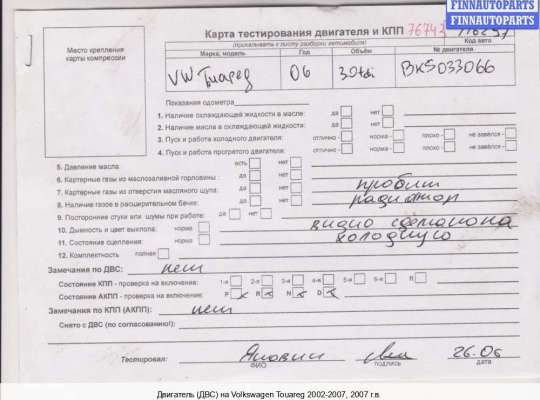 FINNAUTOPARTS
FINNAUTOPARTS
Место крепления карты компрессии
Карта тестирования двигателя и КПП 76743 116297
(прикалывать к листу разборки автомобиля) Код авто
Марка, модель Год Объём № двигателя
VW Туарег 06 3.0tdi BKS033066
Показания одометра
1. Наличие охлаждающей жидкости в масле: да нет
2. Наличие масла в охлаждающей жидкости: да нет
3. Пуск и работа холодного двигателя: отлично - норма - плохо - не завёлся -
4. Пуск и работа прогретого двигателя: отлично - норма - плохо - не завёлся -
5. Давление масла: есть нет
6. Картерные газы из маслозаливной горловины: да нет
7. Картерные газы из отверстия масляного щупа: да нет пробит
8. Наличие газов в расширительном бачке: да нет радиатор
9. Посторонние стуки или шумы при работе: да нет
10. Дымность и цвет выхлопа: норма видио
11. Состояние сцепления: норма холодную
12. Комплектность полная
Замечания по ДВС: нет
Состояние КПП - проверка на включение: 1-я 2-я 3-я 4-я 5-я 6-я R
Состояние АКПП - проверка на включение: P R N D
Замечания по КПП (АКПП): нет
Снято с ДВС (по согласованию!):
Тестировал: 26.05
ФИО подпись дата
Двигатель (ДВС) на Volkswagen Touareg 2002-2007, 2007 г.в.